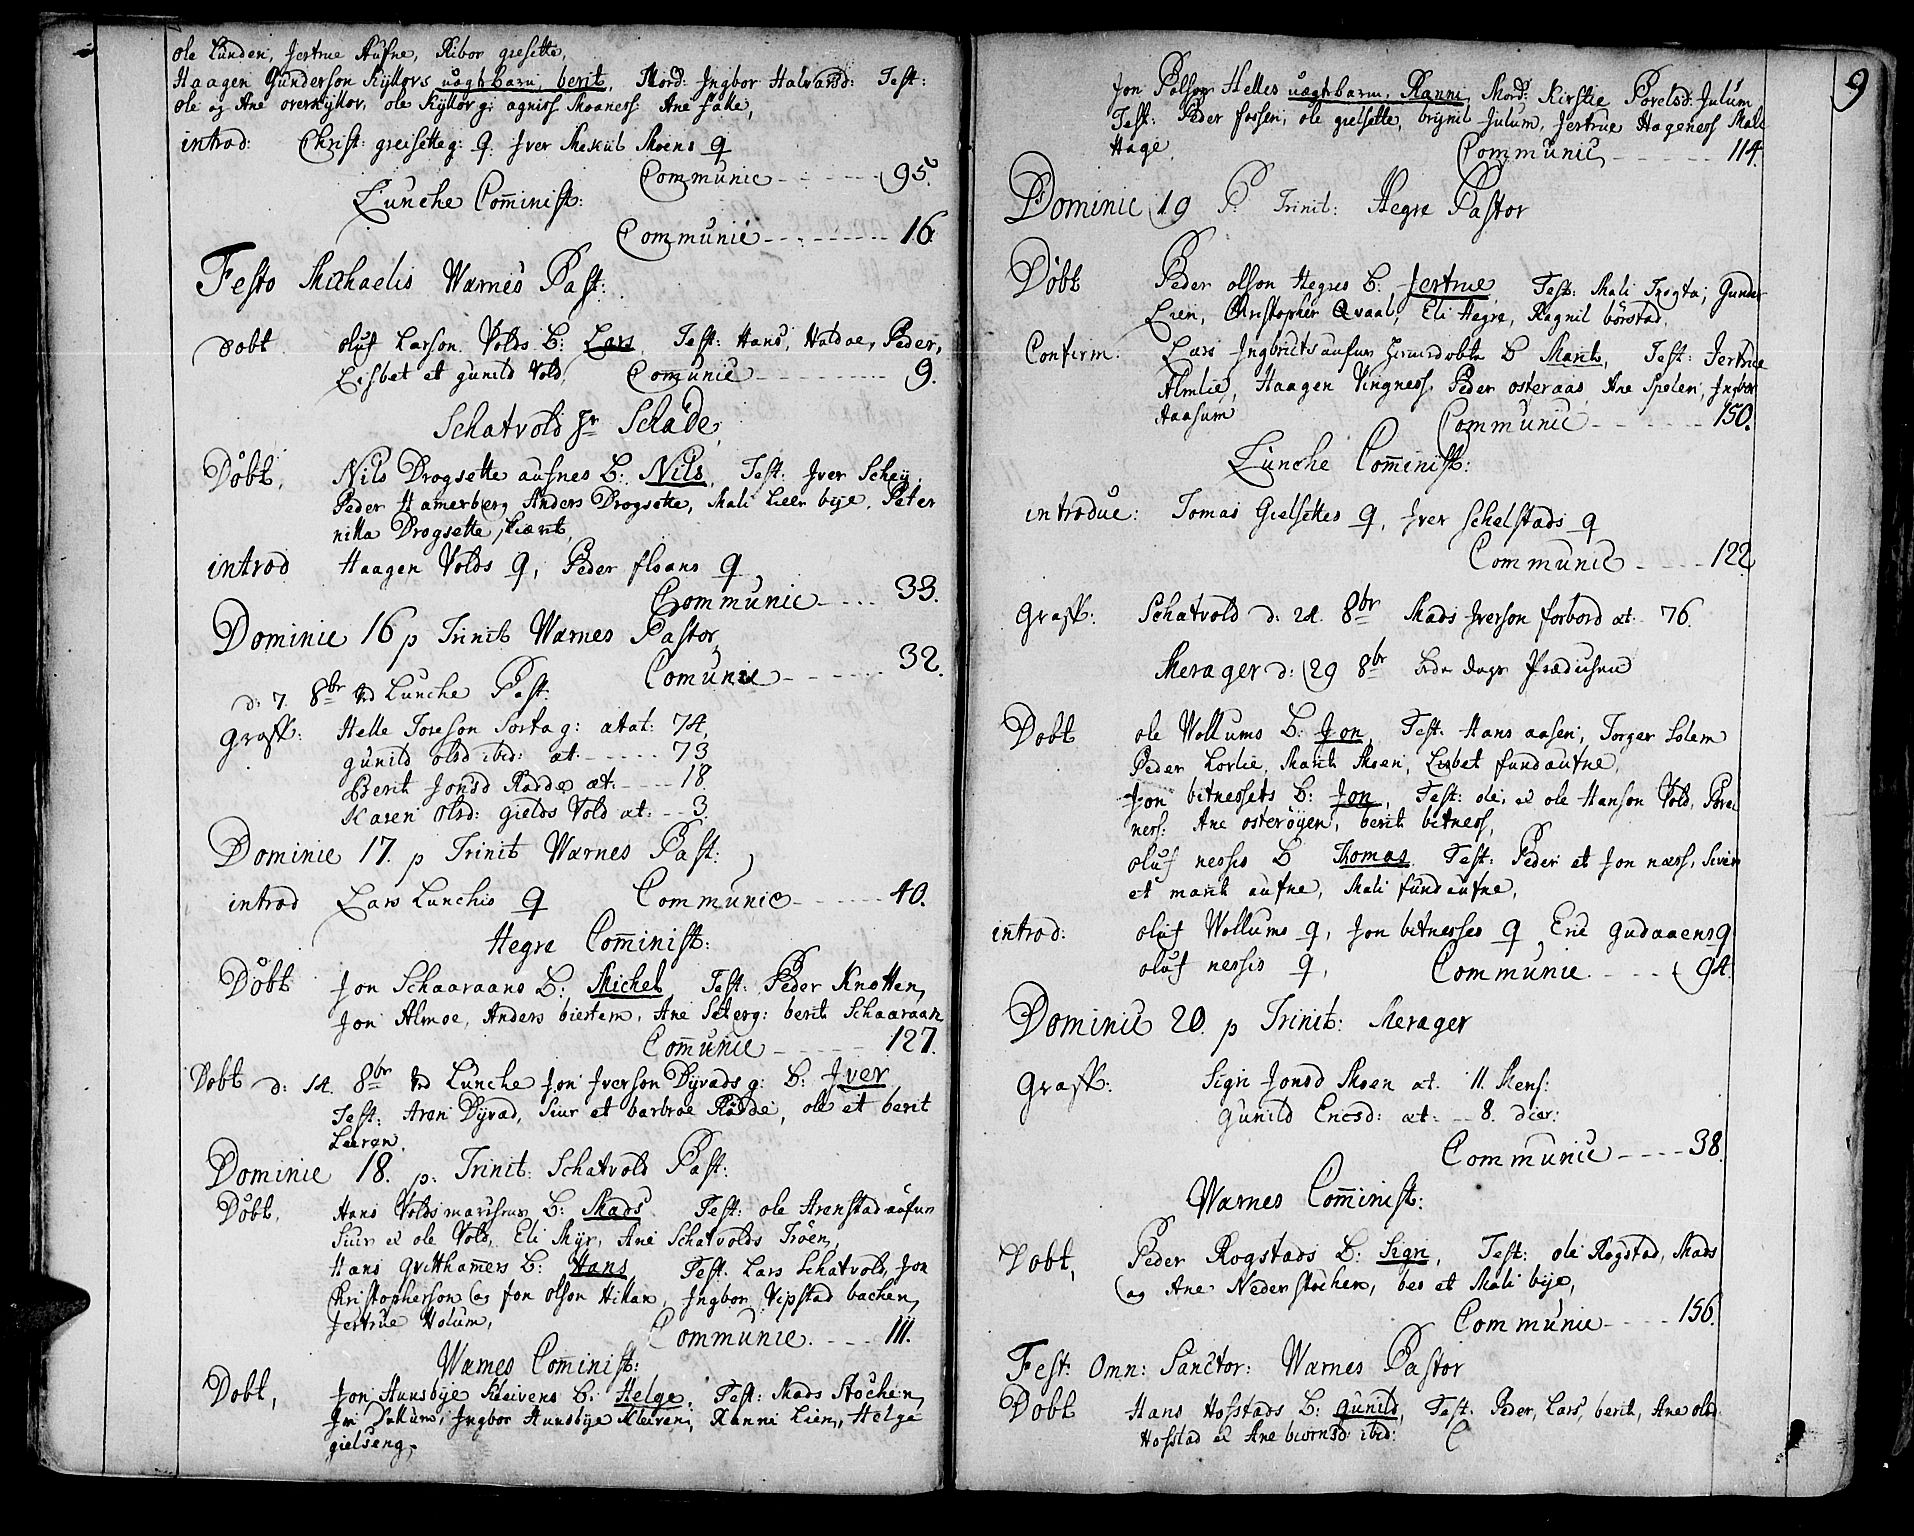 ole Lunden, Jertrue Aufne, Ribor gresette,
Haagen Gunderson Kyllors uægtbarn, berit, Mord: Ingbor Halvarsd: Test:
ole og Ane overkyllor, ole Kyllorg: agniss Moaness Ane falle,
introd: Christ: greisetteg: q: Jver Mekiul Moens q
Communic - - - - - - 95.
Lunche Com̄inist:
Communic - - - - - - - - 16.
Festo Michaelis Wærnes Past:
Dobt oluf Larson Volds B: Lars Test: Hans, Haldoe, Peder,
Lisbet et gunild Vold, Comunic - - - - - - - - - 9.
Schatvold Hr Schade,
Døbt, Nils Drogsette aufnes B: Nils, Test: Jver Schey,
Peder Hamerberg Anders Drogsette, Mali Leer bye, Peter
nilla Drogsette,
introd Haagen Volds q, Peder floans q
Communic - - - - 33.
Dominic 16 p Trinit Wærnes Pastor,
Comunic - - - - - - 32.
d: 7. 8br Lunche Past:
Graff: Helle Joreson Sortag: ætat: 74,
gunild olsd ibid: æt: - - - - - - 73
Berit Jonsd Radde æt: - - - - 18.
Karen olsd: gields Vold æt: - - 3.
Dominic 17. p Trinit Wærnes Past:
introd Lars Lunchis q Communic - - - - - - 40.
Hegre Com̄inist:
Døbt Jon Schaaraans B: Michel Test: Peder Knotten,
Jon Almoe, Anders biertem, Ane Seterg: berit Schaaraan
Com̄unic - - - - - - - 127.
Dobt d: 14. 8br Lunche Jon Jverson Dyvadsg: B: Jver
Test: Aren Dyvad, Siur et barbroe Radde, ole et berit
Leeren.
Dominic 18. p. Trinit: Schatvold Past:
Døbt, Hans Volds B: Mads Test: ole Arenstad aufun
Siur et ole Vold, Eli Myr, Ane Schatvolds Trøen,
Hans qvithamers B: Hans Test: Lars Schatvold, Jon
Christopherson og Jon olson Hillan, Ingbor Vipstad bachen,
Jertrue Volum,
Communic. - - - 111.
Wærnes Com̄inist:
Dobt, Jon Hunsbye Kleivens B: Helge. Test: Mads Stochen,
Ingbor Hunsbye Kleiven, Ranni Lien, Helge
gielseng.
9
Jon Polson Helles uægtebarn, Ranni, Mord: Kirstie Povelsd: Julum
Test: Peder fossen, ole gielsette, brynil Julum, Jertrue Hageness Mali
Hage,
Communic - - - - - - 114.
Dominic 19 P: Trinit: Hegre Pastor
Døbt Peder olson Hegres B: Jertrue Test: Mali Trogta, Gunder
Lien, Christopher Qvaal, Eli Hegre, Ragnil børstad,
Confirm: Lars Ingbricts aufun B Marit, Test: Jertrue
Almlie, Haagen Vingness, Peder osteraas, Ane Spelen, Ingbor
Aasum Communic - - - - - - 150.
Lunche Com̄inist:
introdue: Tomas Gielsettes q, Jver Schelstads q
Communic - - - - 122
Graff: Schatvold d: 24. 8br Mads Jverson forbord æt: 76.
Merager d: 29 8br Bede dags Prædichen
Dobt ole Vollums B: Jon, Test: Hans aasen, Torger Solem
Peder Lorlie, Marit Moen, Lisbet fundaufne,
Jon bitnessets B: Jon, Test: ole, et ole Hanson Vold,
ness: Ane osterøyen, berit bitness,
oluf nessis B Thomas Test: Peder et Jon næss, Siver
et marit aufne, Mali fundaufne,
introd: oluf Wollums q, Jon bitnesses q Eric gudaaens q
oluf nessis q, Communic - - - - 94.
Dominic 20. p Trinit: Merager
Graff: Sigri Jonsd Moen æt: 11. Mens:
Gunild Ericsd: æt: - - 8. dier:
Communic - - - - 38.
Wærnes Com̄inist:
Dobt, Peder Rogstads B: Sigri, Test: ole Rogstad, Mads
og Ane Nederstochen, beo et Mali bye,
Communic - - - - 156.
Fest: Omn: Sanctor: Wærnes Pastor
Dobt Hans Hofstads B: gunild, Test: Peder, Lars, berit, Ane olsd
Hofstad et Ane biørnsd: ibid: